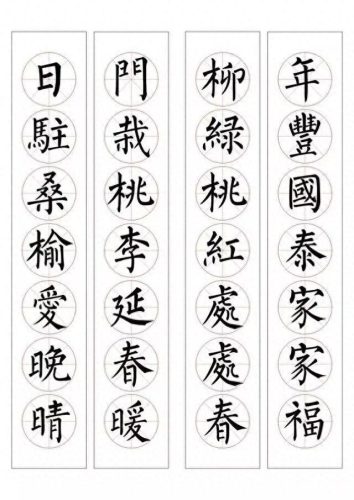 年豐國泰家家福
柳緑桃紅處處春
門栽桃李延春暖
日駐桑榆愛晚晴